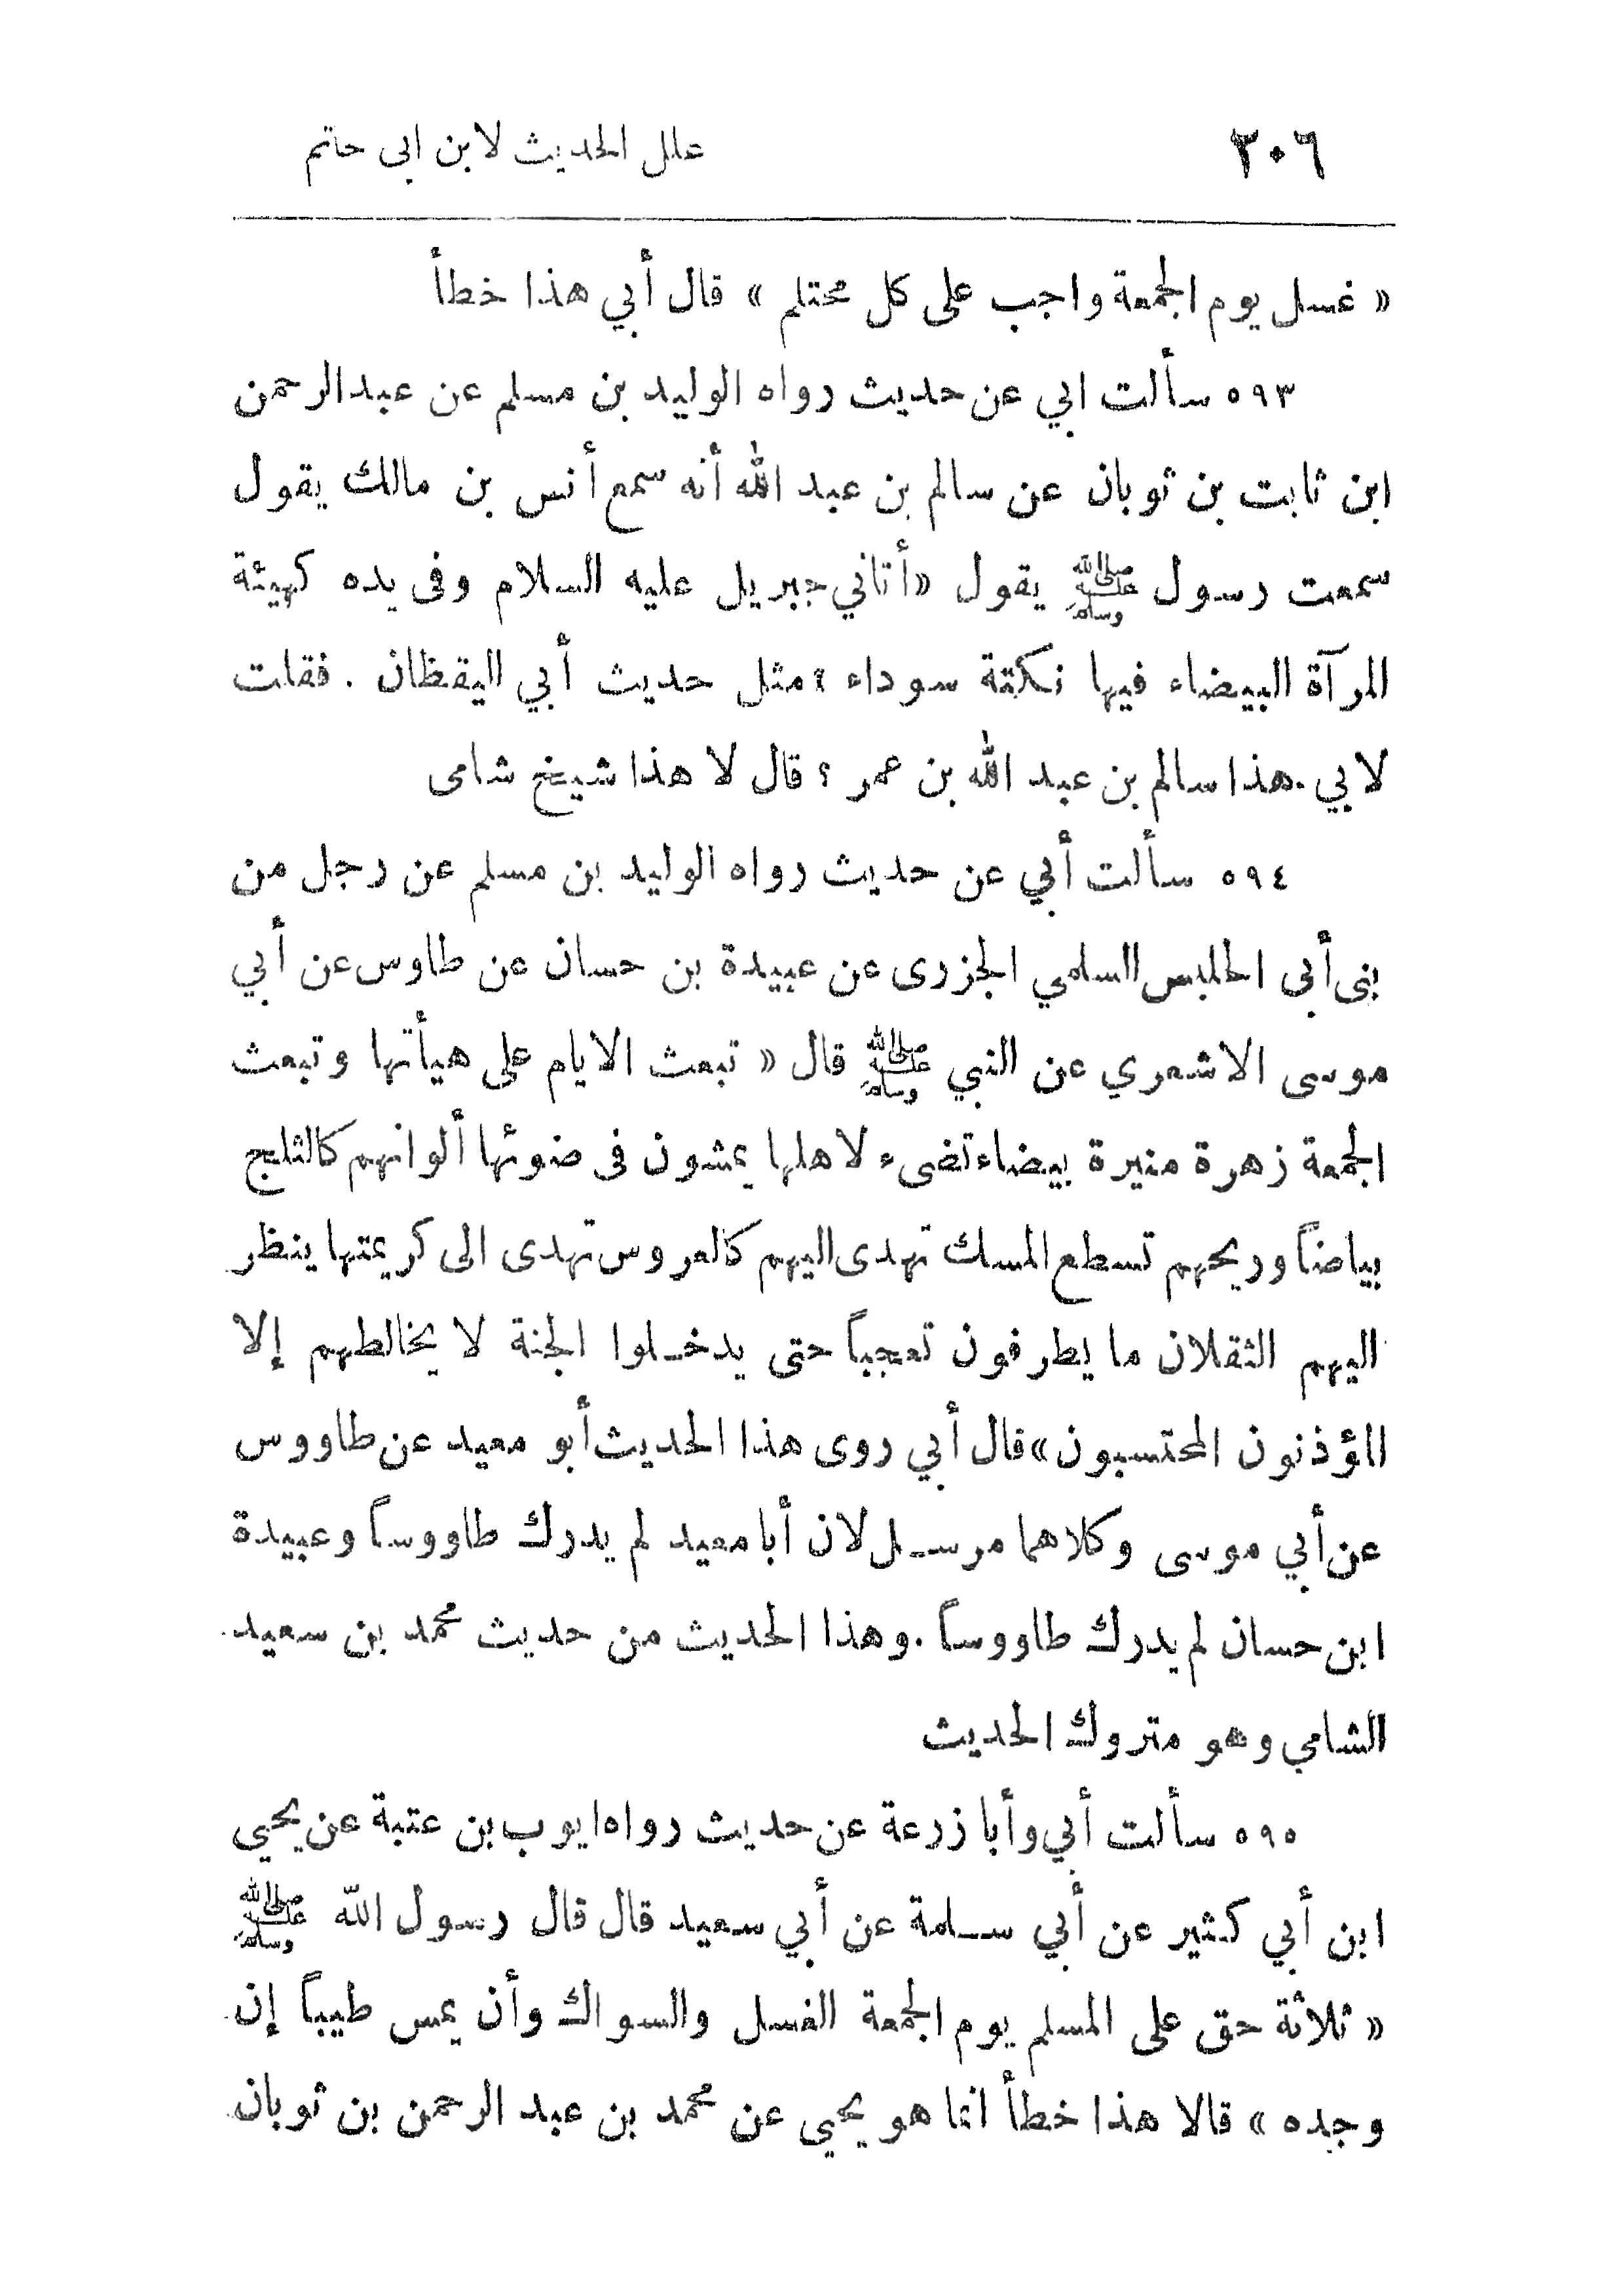 ٢٠٦ علل الحديث لابن ابى حاتم
« غسل يوم الجمعة واجب على كل محتلم » قال أبي هذا خطأ
٥٩٣ سألت ابي عن حديث رواه الوليد بن مسلم عن عبدالرحمن
ابن ثابت بن ثوبان عن سالم بن عبد الله أنه سمع أنس بن مالك يقول
سمعت رسول ﷺ يقول «أتاني جبريل عليه السلام وفى يده كهيئة
المرآة البيضاء فيها نكتة سوداء » مثل حديث أبي اليقظان . فقلت
لابي . هذا سالم بن عبد الله بن عمر ؟ قال لا هذا شيخ شامى
٥٩٤ سألت أبي عن حديث رواه الوليد بن مسلم عن رجل من
بنى أبى الحلبس السلمي الجزرى عن عبيدة بن حسان عن طاوس عن أبي
موسى الاشعري عن النبي ﷺ قال « تبعث الايام على هيأتها وتبعث
الجمعة زهرة منيرة بيضاء تضىء لاهلها يمشون فى ضوئها ألوانهم كالثلج
بياضاً وريحهم تسطع المسك تهدى اليهم كالعروس تهدى الى كريمتها ينظر
اليهم الثقلان ما يطرفون تعجباً حتى يدخلوا الجنة لا يخالطهم إلا
المؤذنون المحتسبون» قال أبي روى هذا الحديث أبو معيد عن طاووس
عن أبي موسى وكلاهما مرسل لان أبا معيد لم يدرك طاووساً وعبيدة
ابن حسان لم يدرك طاووساً . وهذا الحديث من حديث محمد بن سعيد
الشامي وهو متروك الحديث
٥٩٥ سألت أبي وأبا زرعة عن حديث رواه ايوب بن عتبة عن يحيى
ابن أبي كثير عن أبي سلمة عن أبي سعيد قال قال رسول الله ﷺ
« ثلاثة حق على المسلم يوم الجمعة الغسل والسواك وأن يمس طيباً إن
وجده » قالا هذا خطأ انما هو يحيى عن محمد بن عبد الرحمن بن ثوبان